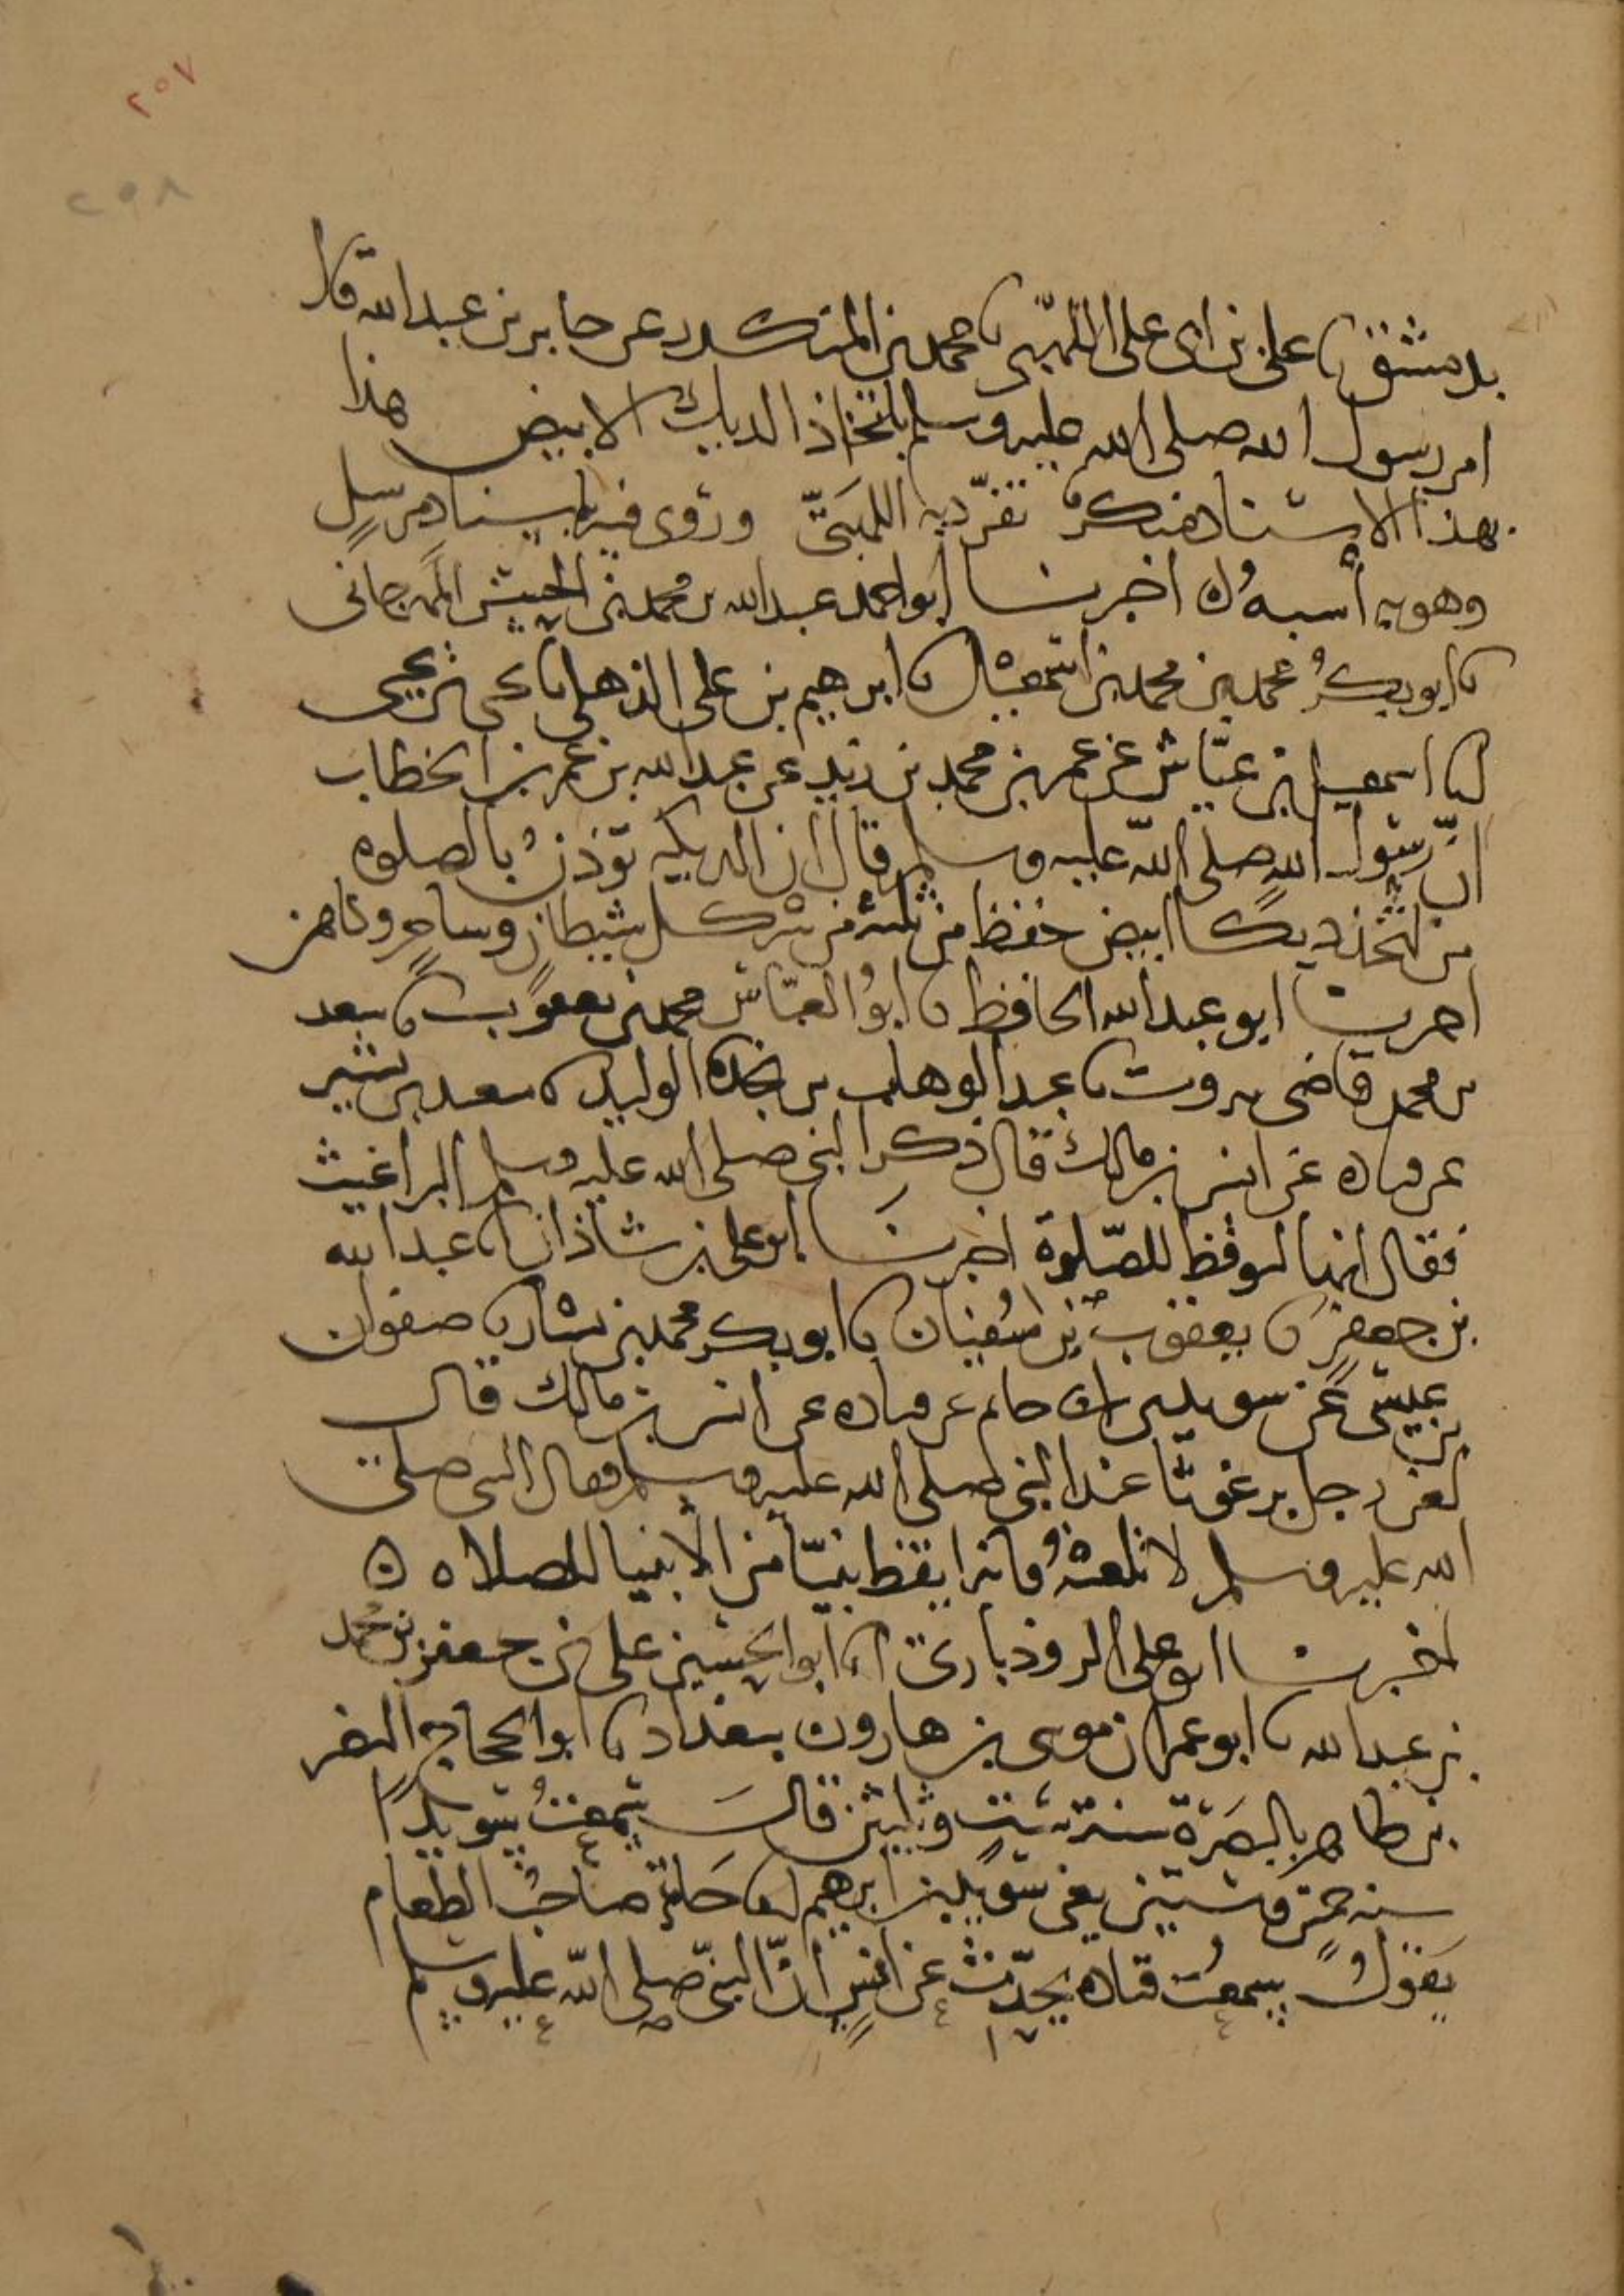 ٢٥٧
٢٥٨
بدمشق نا علي بن ابي علي اللهبي نا محمد بن المنكدر عن جابر بن عبد الله قال
امر رسول الله صلى الله عليه وسلم باتخاذ الديك الابيض هذا
بهذا الاسناد منكر تفرد به اللهبي وروى فيه باسناد مرسل
وهو به أشبه ن اخبرنا ابو احمد عبد الله بن محمد بن الحسن المهرجاني
نا ابو بكر محمد بن محمد بن اسمعيل نا ابرهيم بن علي الذهلي نا يحيى بن يحيى
انا اسمعيل بن عياش عن عمر بن محمد بن زيد عن عبد الله بن عمر بن الخطاب
ان رسول الله صلى الله عليه وسلم قال ان الديكه تؤذن بالصلوه
من اتخذ ديكا ابيض حفظ من ثلثه من شر كل شيطان وساحر وكاهن
اخبرنا ابو عبد الله الحافظ نا ابو العباس محمد بن يعقوب نا سعد
بن محمد قاضي بيروت نا عبد الوهاب بن نجده الوليد نا سعيد بن بشير
عن قتاده عن انس بن مالك قال ذكر النبي صلى الله عليه وسلم البراغيث
فقال انها توقظ للصلوة اخبرنا ابو علي بن شاذان نا عبد الله
بن جعفر نا يعقوب بن سفيان نا ابو بكر محمد بن بشار نا صفوان
بن عيسى عن سويد بن ابي حاتم عن قتاده عن انس بن مالك قال
لعن رجل برغوثا عند النبي صلى الله عليه وسلم فقال النبي صلى
الله عليه وسلم لا تلعنه فانه ايقظ نبيا من الانبيا للصلاه ن
اخبرنا ابو علي الروذباري انا ابو الحسين علي بن جعفر بن محمد
بن عبد الله نا ابو عمران موسى بن هارون ببغداد نا ابو الحجاج النضر
بن طاهر بالبصرة سنة ست وثلثين قال سمعت سويدا
سنه خمس وستين يعني سويد بن ابرهيم ابا حاتم صاحب الطعام
يقول سمعت قتاده يحدث عن انس ان النبي صلى الله عليه وسلم